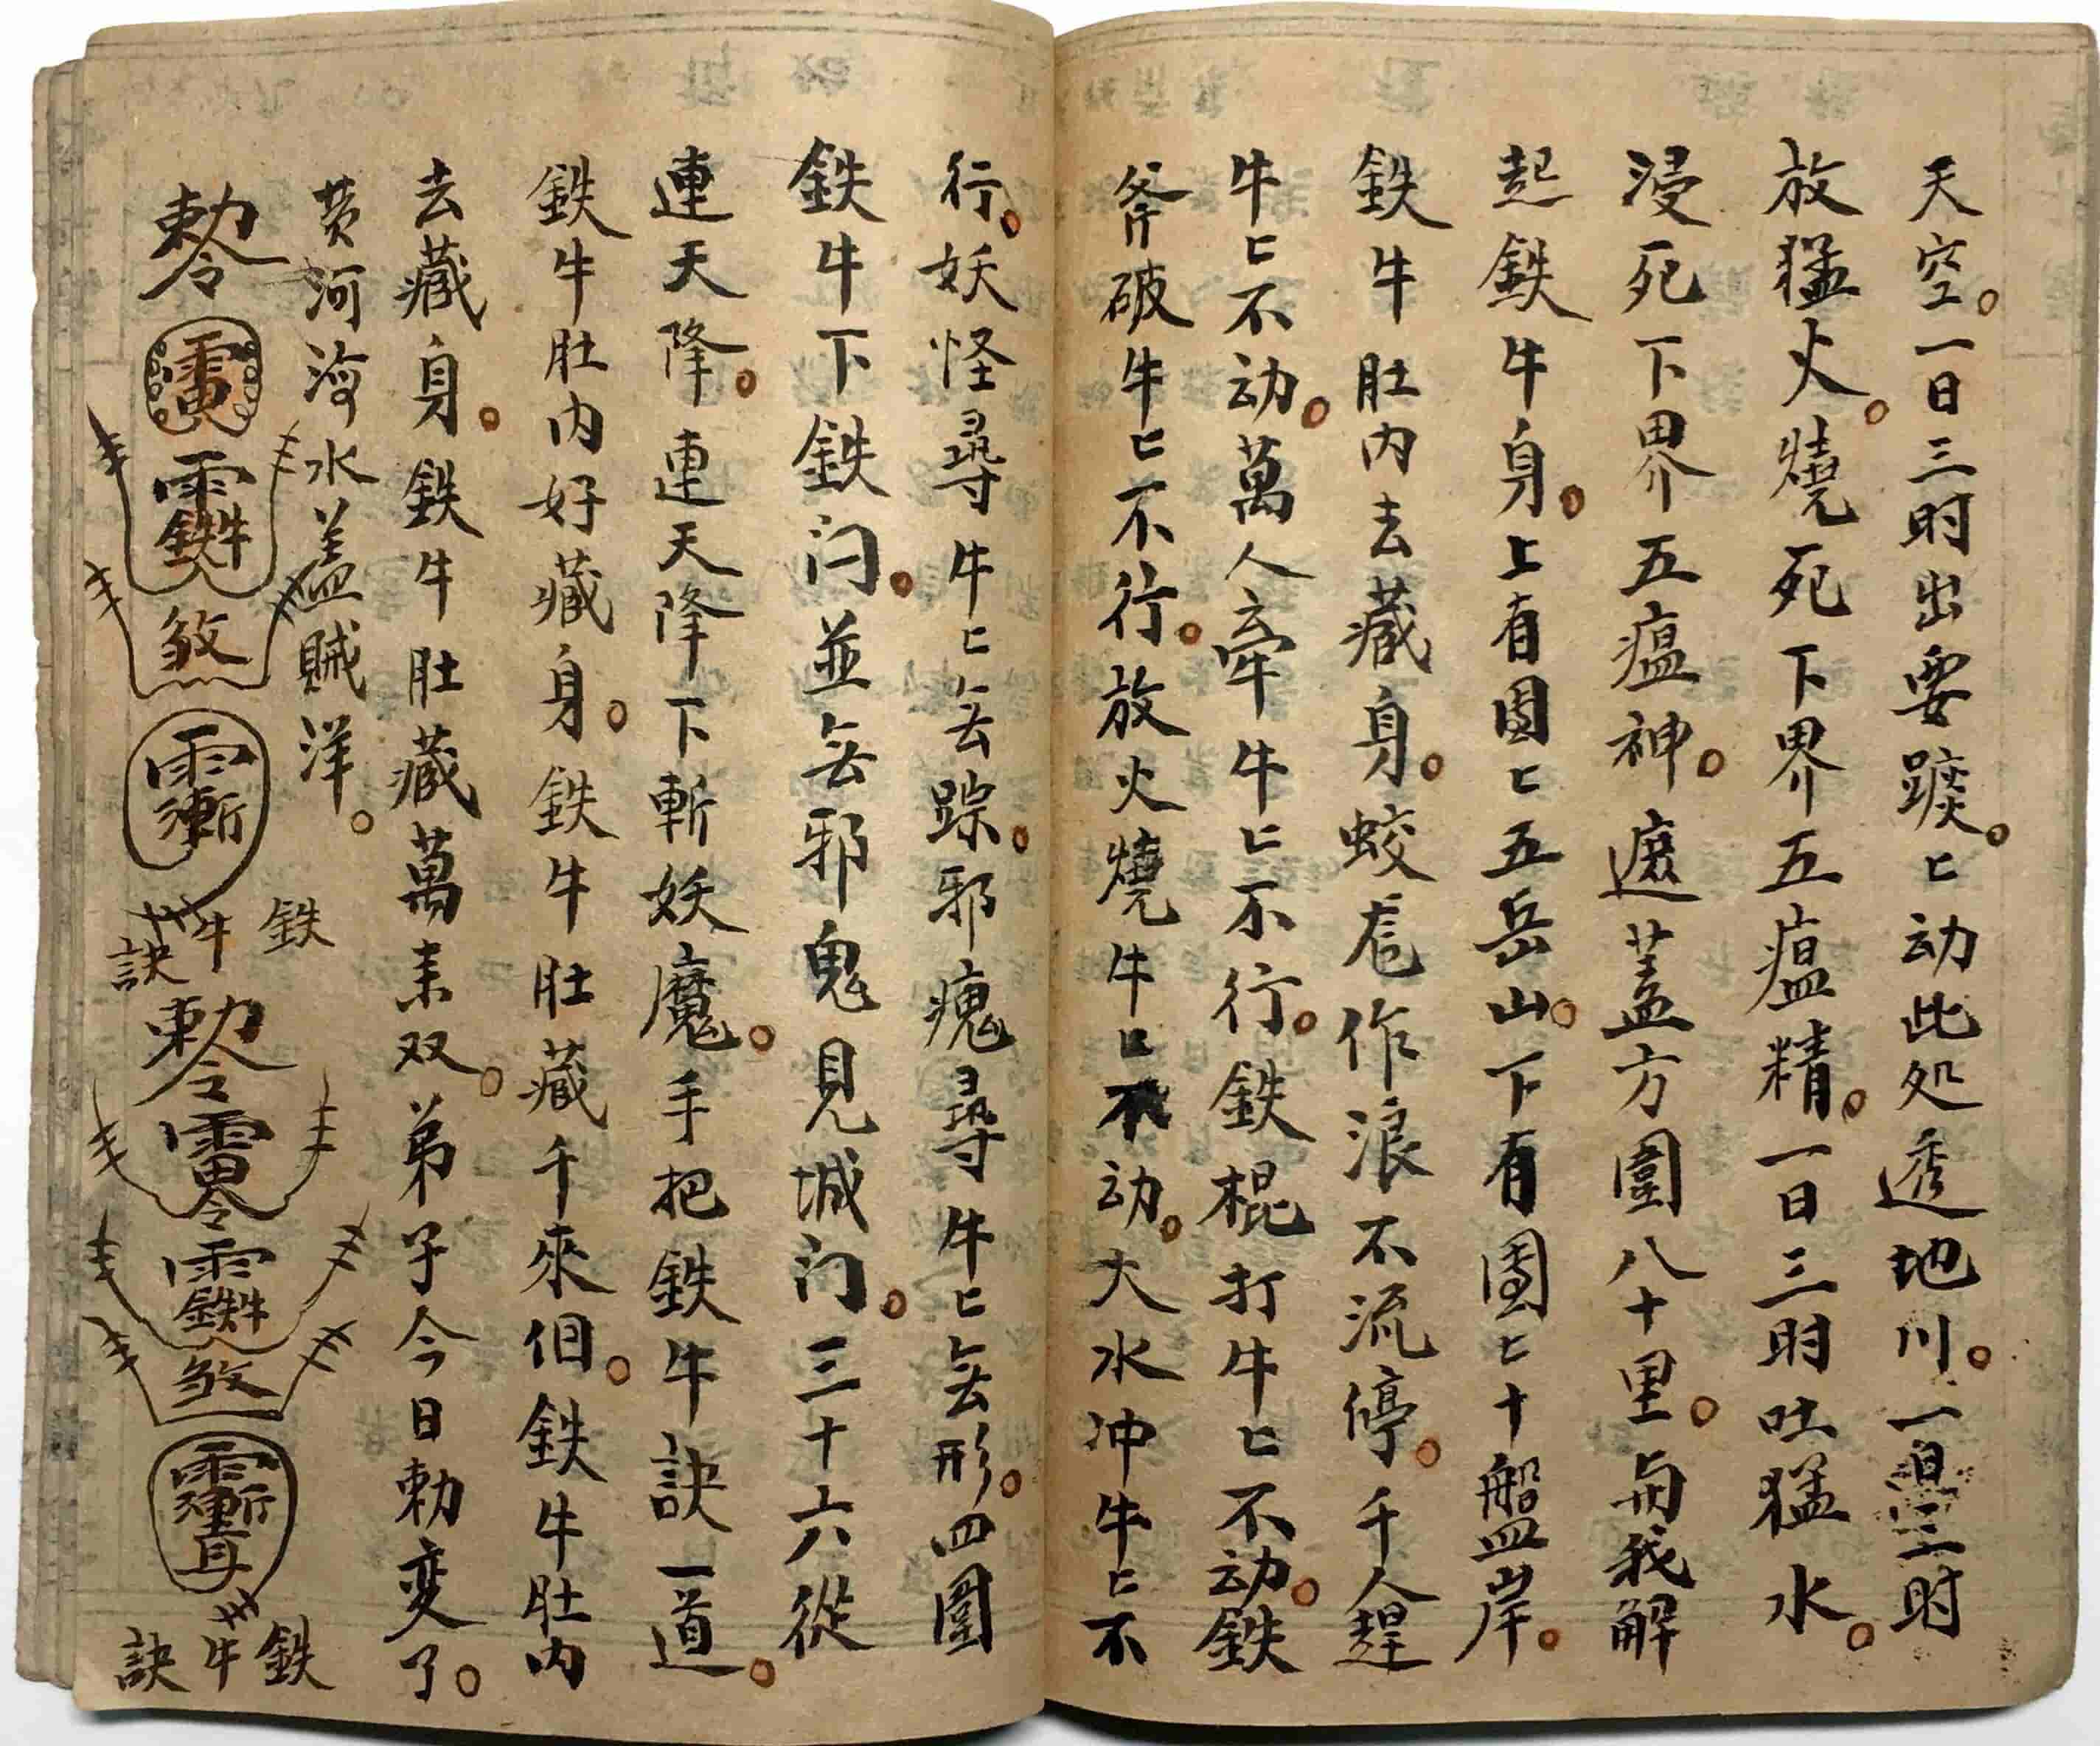 天空。一日三时出要踍。匕动此処透地川。一日三时
放猛火。燒死下界五瘟精。一日三时吐猛水。
浸死下界五瘟神。遮蓋方圍八十里。与我解
起鉄牛身。上有团匕五岳山。下有团匕十盤岸。
鉄牛肚内去藏身。蛟危作浪不流停。千人趕
牛匕不动。萬人牽牛匕不行。鉄棍打牛匕不动。鉄
斧破牛匕不行。放火燒牛匕不动。大水冲牛匕不
行。妖怪尋牛匕旡踪。邪瘣尋牛匕旡形。四圍
鉄牛下鉄门。並旡邪鬼見城门。三十六從
連天降。連天降下斬妖魔。手把鉄牛訣一道。
鉄牛肚内好藏身。鉄牛肚藏千來佀。鉄牛肚内
去藏身。鉄牛肚藏萬耒双。弟子今日勅变了。
黄河海水盖贼洋。
勅令
煞
鉄牛訣
勅令
煞
鉄牛訣